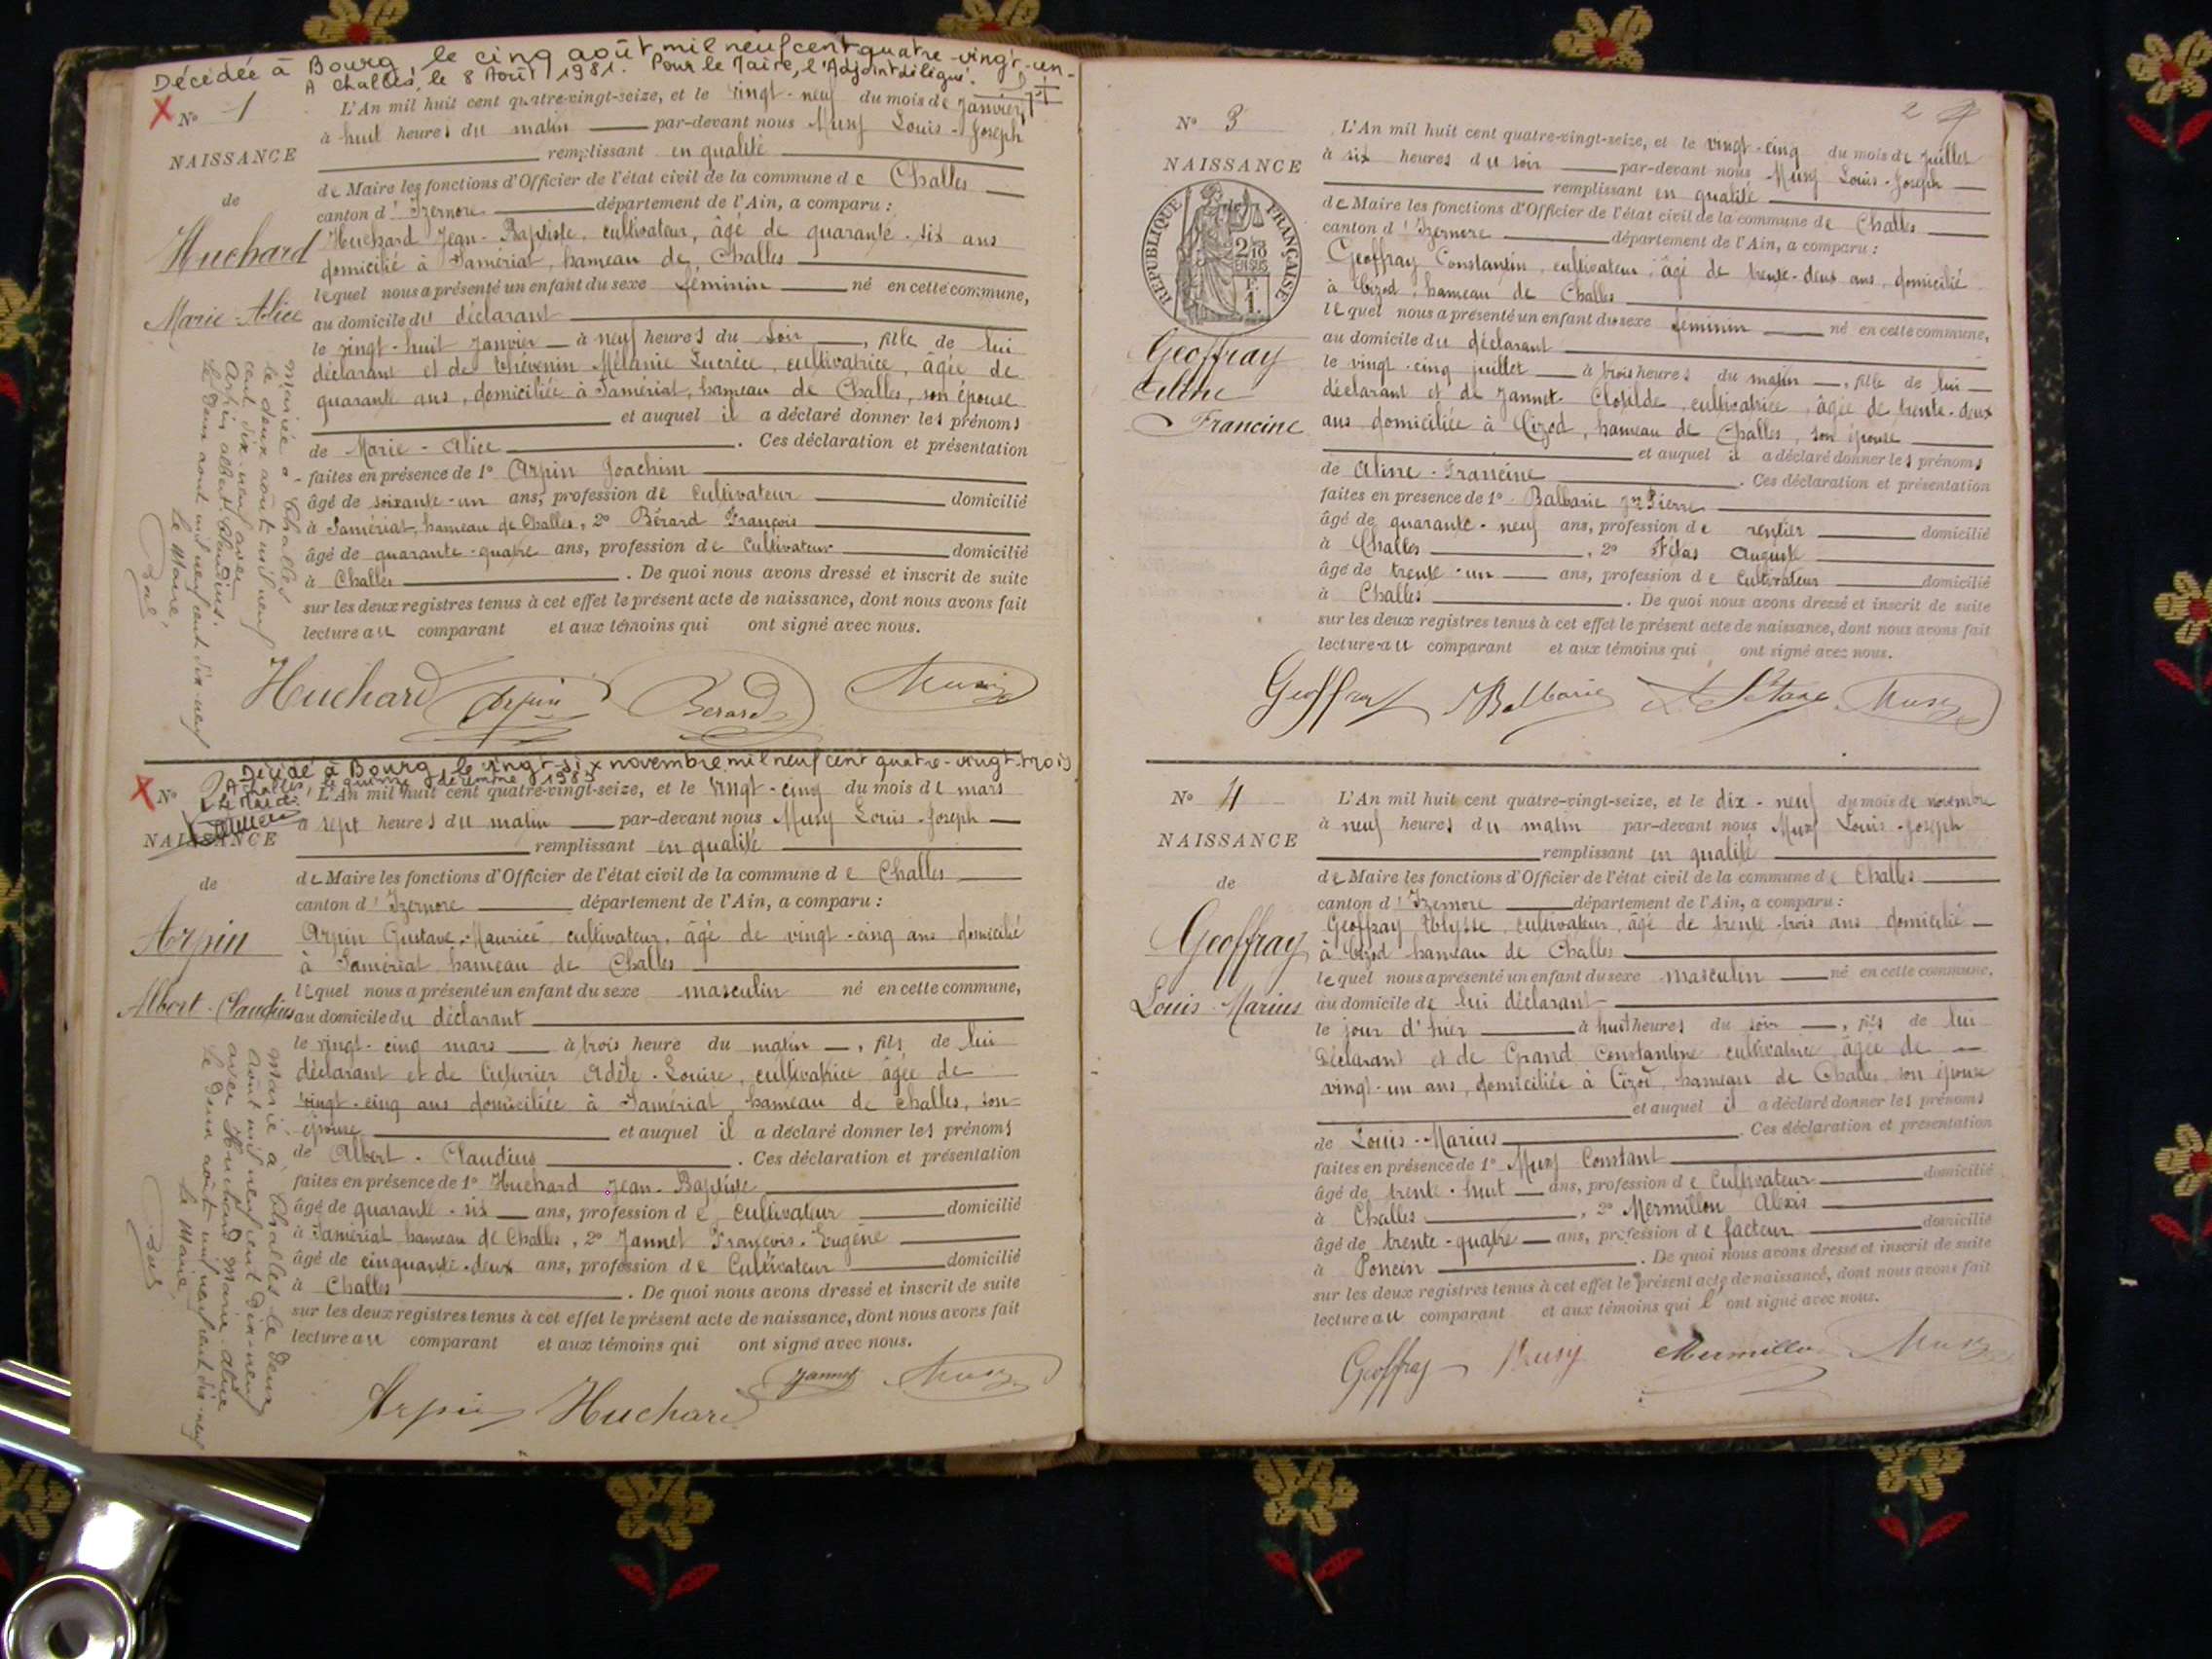 Décédée à Bourg, le cinq août mil neuf cent quatre-vingt-un-
A Challes, le 8 Août 1981. Pour le Maire, l'Adjoint délégué.
N° 1
NAISSANCE
de
Huchard
Marie-Alice
L'An mil huit cent quatre-vingt-seize, et le vingt-neuf du mois de Janvier
à huit heures du matin par-devant nous Musy Louis-Joseph
remplissant en qualité
de Maire les fonctions d'Officier de l'état civil de la commune de Challes
canton d'Izernore département de l'Ain, a comparu :
Huchard Jean-Baptiste, cultivateur, âgé de quarante-six ans
domicilié à Samériat, hameau de Challes
lequel nous a présenté un enfant du sexe féminin né en cette commune,
au domicile du déclarant
le vingt-huit Janvier à neuf heures du soir, fille de lui
déclarant et de Thévenin Mélanie Lucrèce, cultivatrice, âgée de
quarante ans, domiciliée à Samériat, hameau de Challes, son épouse
et auquel il a déclaré donner les prénoms
de Marie-Alice. Ces déclaration et présentation
faites en présence de 1° Arpin Joachim
âgé de soixante-un ans, profession de cultivateur domicilié
à Samériat, hameau de Challes, 2° Bérard François
âgé de quarante-quatre ans, profession de cultivateur domicilié
à Challes. De quoi nous avons dressé et inscrit de suite
sur les deux registres tenus à cet effet le présent acte de naissance, dont nous avons fait
lecture au comparant et aux témoins qui ont signé avec nous.
Mariée à Challes
le deux août mil neuf
cent dix-neuf avec
Arpin Albert Claudius.
Le deux août mil neuf cent dix-neuf
Le Maire,
Huchard Arpin Bérard Musy
Décédé à Bourg, le vingt-six novembre mil neuf cent quatre-vingt-trois
A Challes, le quinze décembre 1983
Le Maire
N° 2
NAISSANCE
de
Arpin
Albert-Claudius
L'An mil huit cent quatre-vingt-seize, et le vingt-cinq du mois de mars
à sept heures du matin par-devant nous Musy Louis-Joseph
remplissant en qualité
de Maire les fonctions d'Officier de l'état civil de la commune de Challes
canton d'Izernore département de l'Ain, a comparu :
Arpin Gustave-Maurice cultivateur, âgé de vingt-cinq ans domicilié
à Samériat hameau de Challes
lequel nous a présenté un enfant du sexe masculin né en cette commune,
au domicile du déclarant
le vingt-cinq mars à trois heure du matin, fils de lui
déclarant et de Adèle-Louise, cultivatrice âgée de
vingt-cinq ans domiciliée à Samériat, hameau de challes, son
épouse et auquel il a déclaré donner les prénoms
de Albert-Claudius. Ces déclaration et présentation
faites en présence de 1° Huchard Jean-Baptiste
âgé de quarante-six ans, profession de cultivateur domicilié
à Samériat hameau de Challes, 2° Jannet François-Eugène
âgé de cinquante-deux ans, profession de Cultivateur domicilié
à Challes. De quoi nous avons dressé et inscrit de suite
sur les deux registres tenus à cet effet le présent acte de naissance, dont nous avons fait
lecture au comparant et aux témoins qui ont signé avec nous.
Marié à Challes le deux
Août mil neuf cent dix-neuf
avec Huchard Marie-Alice
Le deux août mil neuf cent dix-neuf
Le Maire,
Arpin Huchard Jannet Musy
2
N° 3
NAISSANCE
de
RÉPUBLIQUE FRANÇAISE
2/10 EN SUS
1 F.
Geoffray
Céline
Francine
L'An mil huit cent quatre-vingt-seize, et le vingt-cinq du mois de juillet
à six heures du soir par-devant nous Musy Louis-Joseph
remplissant en qualité
de Maire les fonctions d'Officier de l'état civil de la commune de Challes
canton d'Izernore département de l'Ain, a comparu :
Geoffray Constantin, cultivateur, âgé de trente-deux ans, domicilié
à Cizod, hameau de Challes
lequel nous a présenté un enfant du sexe féminin né en cette commune,
au domicile du déclarant
le vingt-cinq juillet à trois heures du matin, fille de lui
déclarant et de Jannet Clotilde, cultivatrice, âgée de trente-deux
ans domiciliée à Cizod, hameau de Challes, son épouse
et auquel il a déclaré donner les prénoms
de Francine. Ces déclaration et présentation
faites en présence de 1° Balbarie Jn Pierre
âgé de quarante-neuf ans, profession de rentier domicilié
à Challes, 2° Auguste
âgé de trente-un ans, profession de cultivateur domicilié
à Challes. De quoi nous avons dressé et inscrit de suite
sur les deux registres tenus à cet effet le présent acte de naissance, dont nous avons fait
lecture au comparant et aux témoins qui ont signé avec nous.
Geoffray Balbarie Musy
N° 4
NAISSANCE
de
Geoffray
Louis-Marius
L'An mil huit cent quatre-vingt-seize, et le dix-neuf du mois de novembre
à neuf heures du matin par-devant nous Musy Louis-Joseph
remplissant en qualité
de Maire les fonctions d'Officier de l'état civil de la commune de Challes
canton d'Izernore département de l'Ain, a comparu :
Geoffray Ulysse, cultivateur, âgé de trente-trois ans, domicilié
à Cizod hameau de Challes
lequel nous a présenté un enfant du sexe masculin né en cette commune,
au domicile de lui déclarant
le jour d'hier à huit heures du soir, fils de lui
déclarant et de Grand Constantine cultivatrice âgée de
vingt-un ans, domiciliée à Cizod, hameau de Challes, son épouse
et auquel il a déclaré donner les prénoms
de Louis-Marius. Ces déclaration et présentation
faites en présence de 1° Musy Constant
âgé de trente-huit ans, profession de Cultivateur domicilié
à Challes, 2° Mermillon Alexis
âgé de trente-quatre ans, profession de facteur domicilié
à Poncin. De quoi nous avons dressé et inscrit de suite
sur les deux registres tenus à cet effet le présent acte de naissance, dont nous avons fait
lecture au comparant et aux témoins qui ont signé avec nous.
Geoffray Musy Mermillon Musy